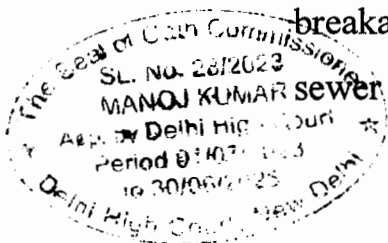 breaka
The Seal of Oath Commissioner
SL. No. 28/2023
MANOJ KUMAR
sewer
by Delhi High Court
Period
to 30/06/
Delhi High Court, New Delhi